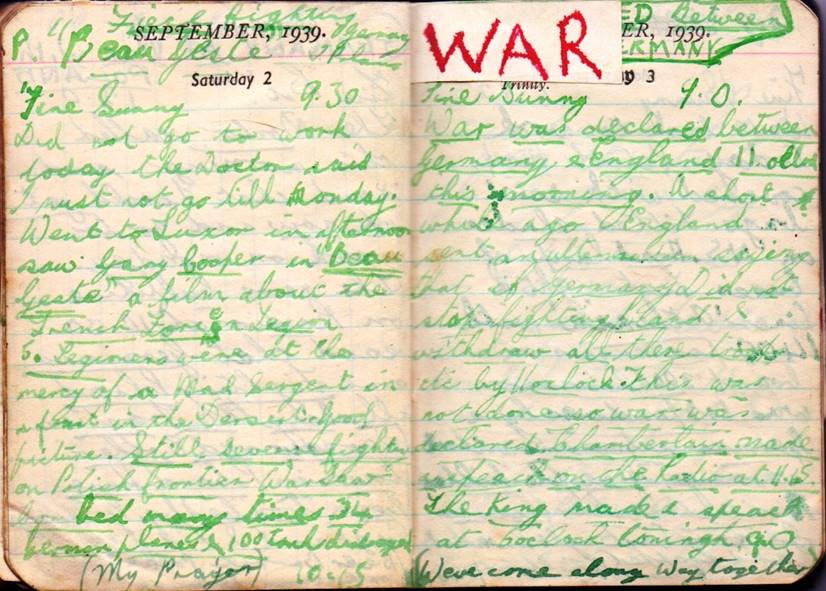 SEPTEMBER, 1939.
P. "Beau Geste"
Saturday 2
"Fine Sunny 9.30
Did not go to work
today the Doctor said
I must not go till Monday.
Went to Luxor in afternoon
saw Gary Cooper in "Beau
Geste" a film about the
French Foriegn Legion
5. Legimens were at the
mercy of a Mad Sergent in
a fort in the Dersert. Good
picture. Still severe fighting
on Polish frontier Warsaw
bed many times 34
German planes & 100 Tanks distroyed
(My Prayer) 10.15
WAR
ED Between
ER, 1939.
GERMANY
Trinity.
3
Fine Sunny 9.0.
War was declared between
Germany & England 11.oclock
this morning. A short
while ago England
sent an ultermium saying
that if Germany Did not
stop fighting Poland &
withdraw all there troops
etc by 11oclock. This was
not done so war was
declared. Chamberlain made
speach on the Radio at 11.15
The King made a speach
at oclock tonight 9.0
(Weve come along way together)